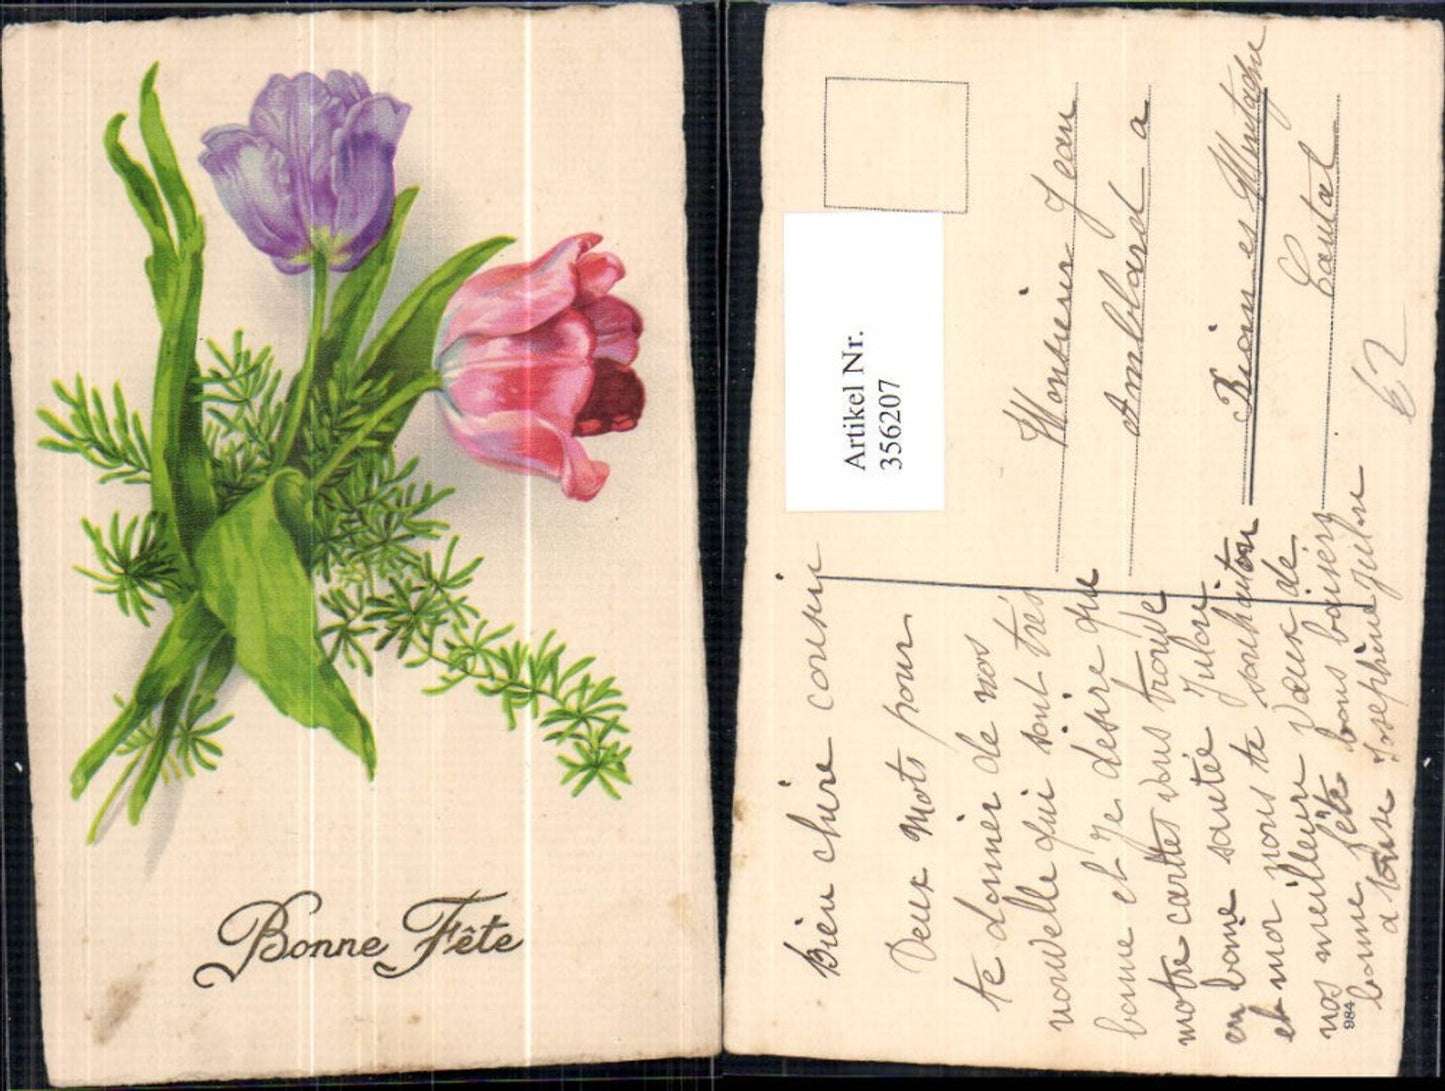 Bonne Fête
Artikel Nr.
356207
Monsieur Jean
Amblard a
es Montagne
Cantal
62
Bien chère cousin
Deux Mots pour
te donner de nos
nouvelle qui sont très
bonne et Je désire que
motre cartte vous trouve
en bone santée Jules
et moi nous te souhaiton
nos meilleurs Vœux de
bonne fête bons baisers
a tous Josephine Jules
984